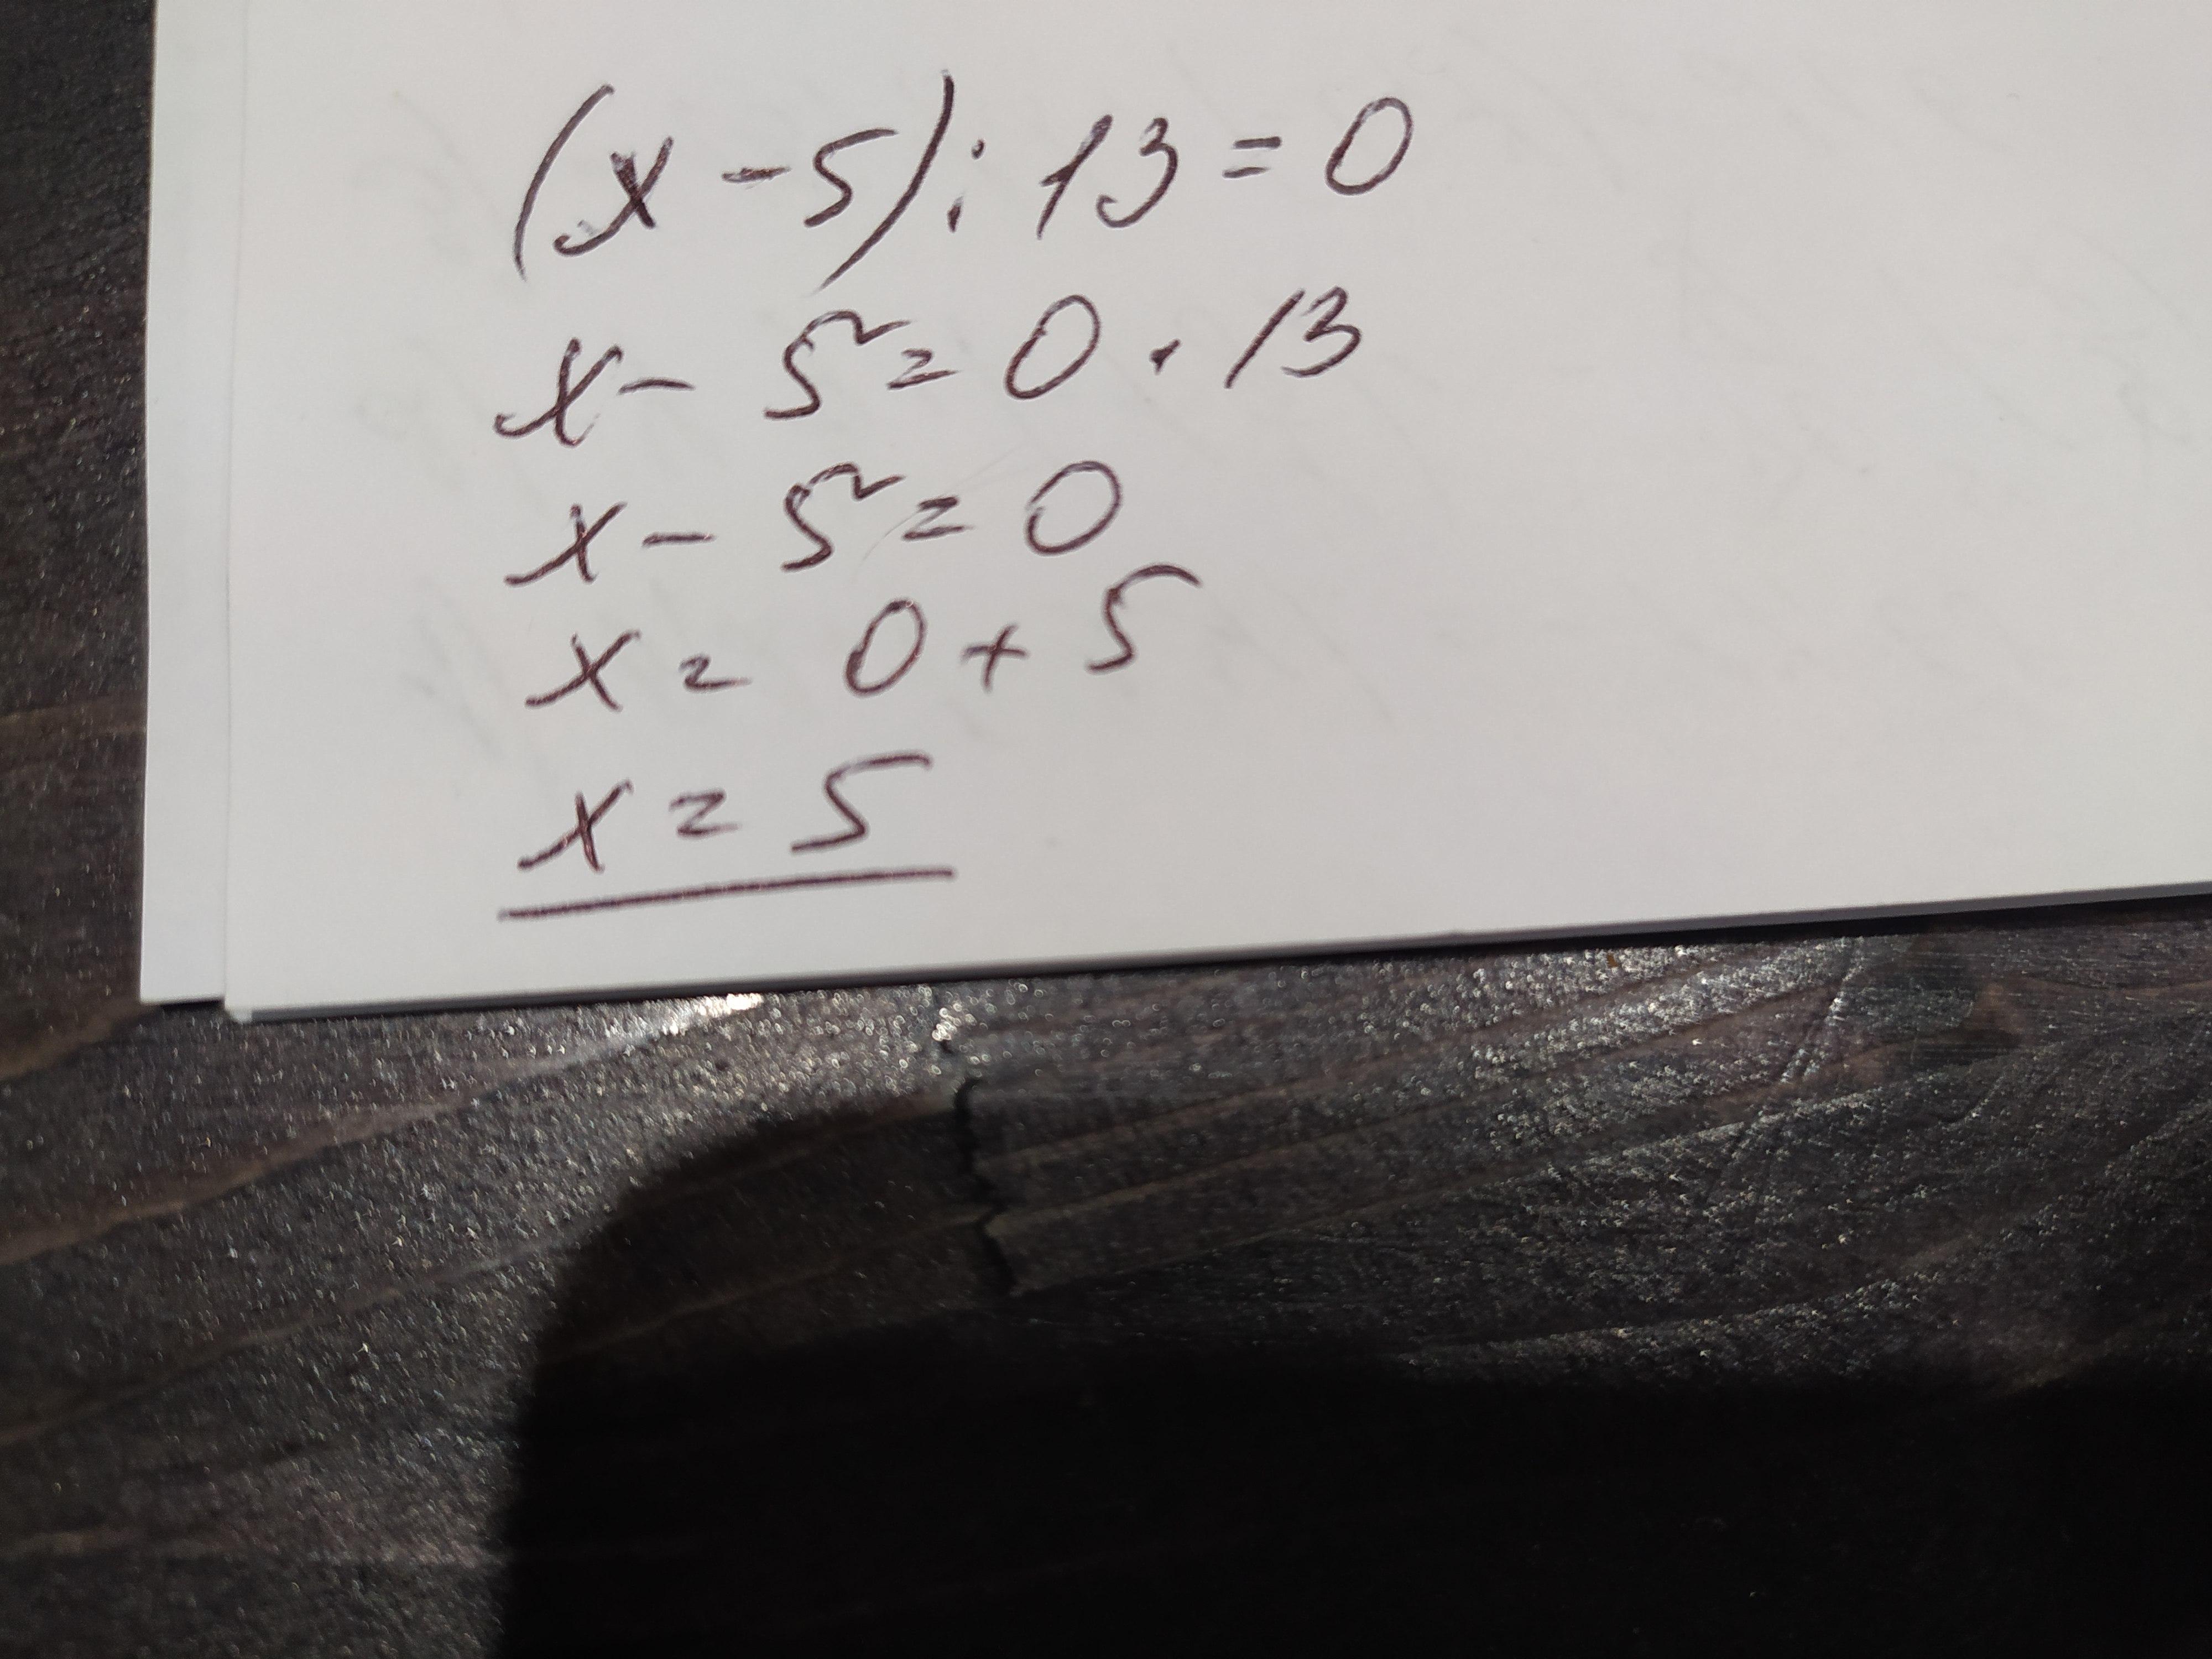 (x - 5) : 13 = 0
x - 5 = 0 · 13
x - 5 = 0
x = 0 + 5
x = 5